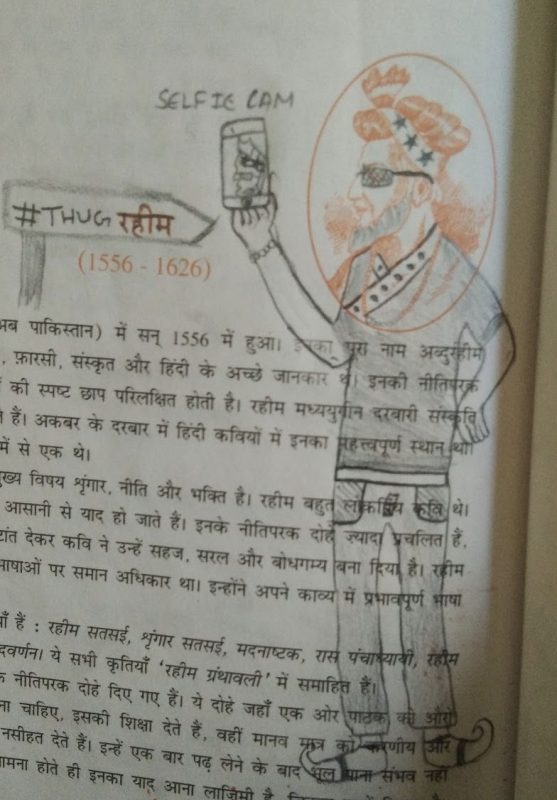 SELFIE CAM
#THUG रहीम
(1556 - 1626)
अब पाकिस्तान) में सन् 1556 में हुआ। इनका पूरा नाम अब्दुर्रहीम
, फ़ारसी, संस्कृत और हिंदी के अच्छे जानकार थे। इनकी नीतिपरक
की स्पष्ट छाप परिलक्षित होती है। रहीम मध्ययुगीन दरबारी संस्कृति
हैं। अकबर के दरबार में हिंदी कवियों में इनका महत्त्वपूर्ण स्थान था।
में से एक थे।
मुख्य विषय शृंगार, नीति और भक्ति है। रहीम बहुत लोकप्रिय कवि थे।
आसानी से याद हो जाते हैं। इनके नीतिपरक दोहे ज़्यादा प्रचलित हैं,
देकर कवि ने उन्हें सहज, सरल और बोधगम्य बना दिया है। रहीम
भाषाओं पर समान अधिकार था। इन्होंने अपने काव्य में प्रभावपूर्ण भाषा
हैं : रहीम सतसई, शृंगार सतसई, मदनाष्टक, रास पंचाध्यायी, रहीम
ये सभी कृतियाँ ‘रहीम ग्रंथावली’ में समाहित हैं।
नीतिपरक दोहे दिए गए हैं। ये दोहे जहाँ एक ओर पाठक को औरों
चाहिए, इसकी शिक्षा देते हैं, वहीं मानव मात्र को करणीय और
नसीहत देते हैं। इन्हें एक बार पढ़ लेने के बाद भूल पाना संभव नहीं
होते ही इनका याद आना लाज़िमी है